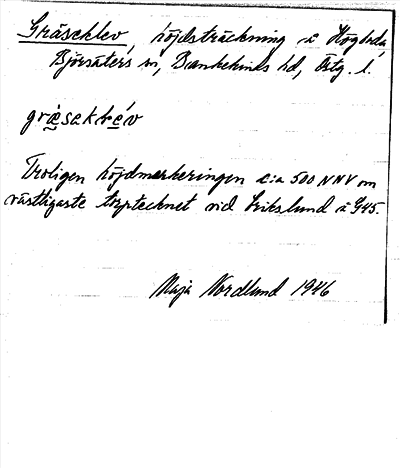 Gräseklev, höjdsträckning å Höghda,
Björsäters sn, Bankekinds hd, Östg. l.
gräsəklev
Troligen höjdmarkeringen c:a 500 NNV om
västligaste torptecknet vid Erikslund å G45.
Maja Nordlund 1946